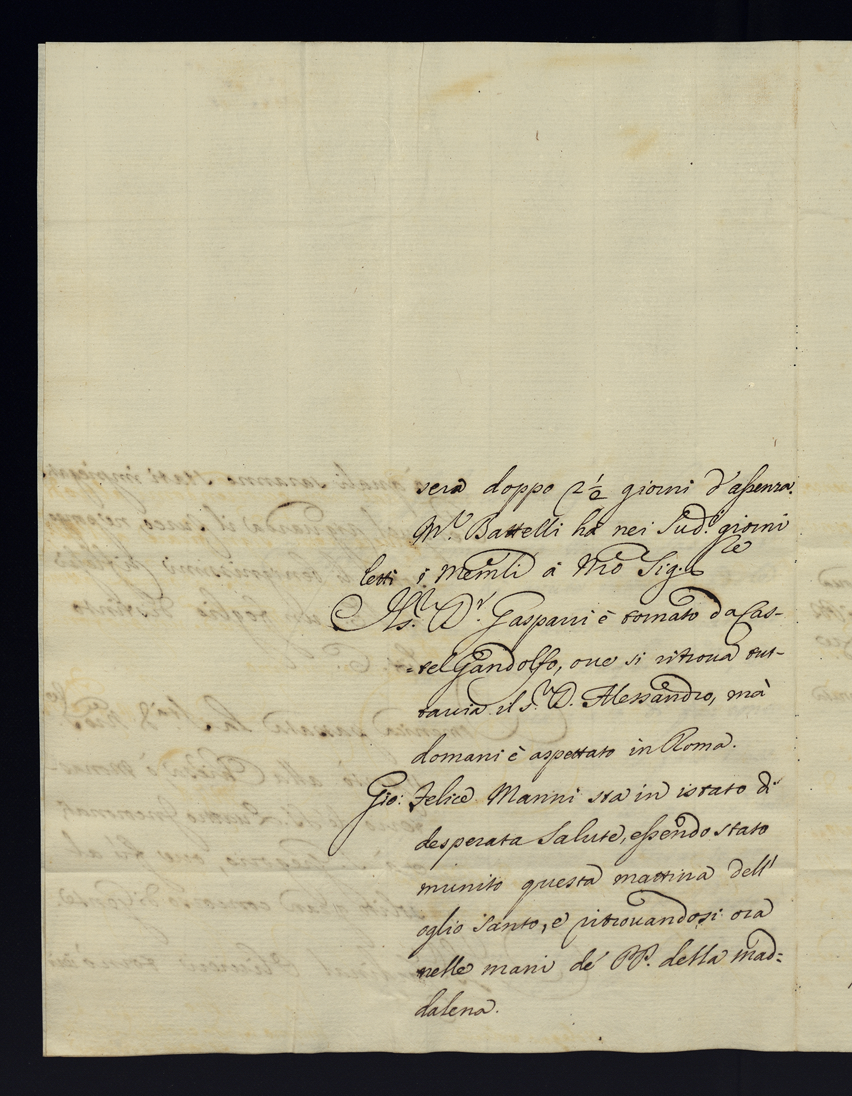 sera doppo 2½ giorni d'assenza.
M.r Battelli ha nei Sud.i giorni
letti i Mem̃li à Nr̃o Sig.re
Il S.r D.r Gasparri è tornato da Cas-
tel Gandolfo, ove si ritrova tut-
tavia il S.r D. Alessandro, mà
domani è aspettato in Roma.
Gio: Felice Manni sta in istato di
desperata salute, essendo stato
munito questa mattina dell'
oglio Santo, e ritrovandosi ora
nelle mani de' PP. della Mad-
dalena.